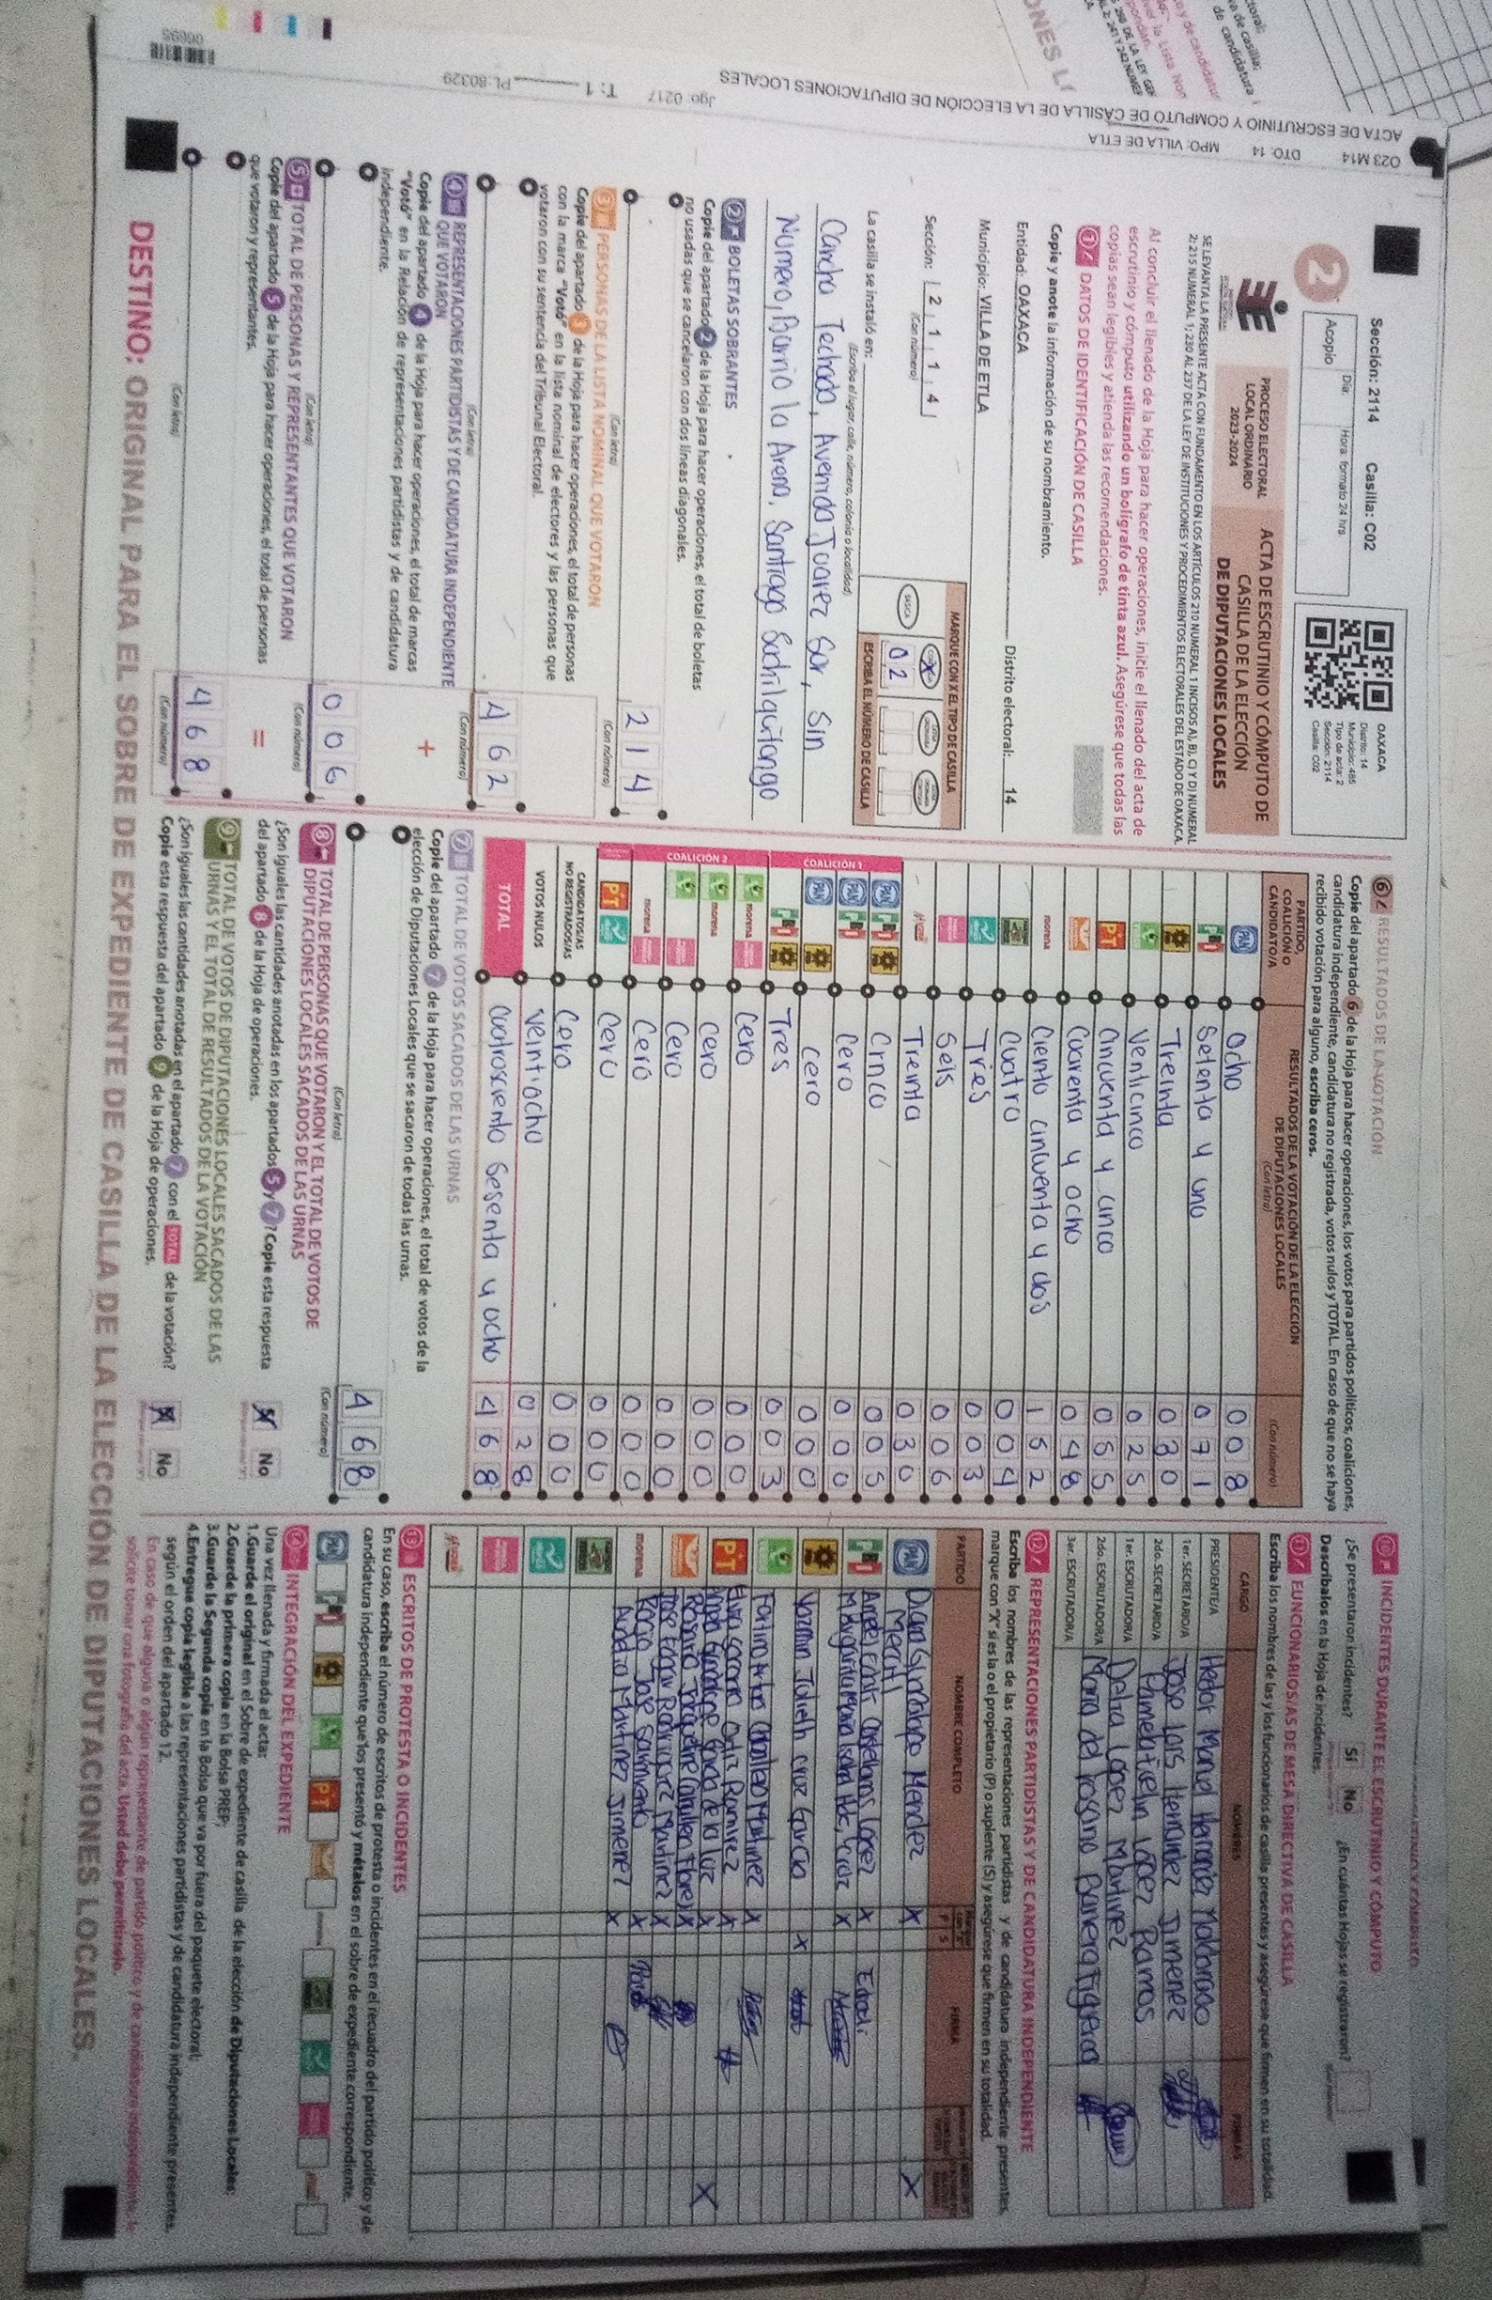 ACTA DE ESCRUTINIO Y CÓMPUTO DE CASILLA DE LA ELECCIÓN DE DIPUTACIONES LOCALES
023 M14 DTO: 14 MPO: VILLA DE ETLA
Jgo: 0217 T: 1 PL: 80329
Sección: 2114 Casilla: C02
Día:
Hora: formato 24 hrs
2
Acopio
OAXACA
Distrito: 14
Municipio: 485
Tipo de acta: 2
Sección: 2114
Casilla: C02
PROCESO ELECTORAL
LOCAL ORDINARIO
2023-2024
ACTA DE ESCRUTINIO Y CÓMPUTO DE
CASILLA DE LA ELECCIÓN
DE DIPUTACIONES LOCALES
SE LEVANTA LA PRESENTE ACTA CON FUNDAMENTO EN LOS ARTÍCULOS 210 NUMERAL 1 INCISOS A), B), C) Y D) NUMERAL
2; 215 NUMERAL 1; 230 AL 237 DE LA LEY DE INSTITUCIONES Y PROCEDIMIENTOS ELECTORALES DEL ESTADO DE OAXACA.
Al concluir el llenado de la Hoja para hacer operaciones, inicie el llenado del acta de
escrutinio y cómputo utilizando un bolígrafo de tinta azul. Asegúrese que todas las
copias sean legibles y atienda las recomendaciones.
1 DATOS DE IDENTIFICACIÓN DE CASILLA
Copie y anote la información de su nombramiento.
Entidad: OAXACA Distrito electoral: 14
Municipio: VILLA DE ETLA
Sección: 2 1 1 4
(Con número)
MARQUE CON X EL TIPO DE CASILLA
BÁSICA
X
0 2
ESCRIBA EL NÚMERO DE CASILLA
La casilla se instaló en:
(Escriba el lugar, calle, número, colonia o localidad)
Cancha Techada, Avenida Juarez Sur, Sin
Numero, Barrio la Arena, Santiago Suchilquitongo
2 BOLETAS SOBRANTES
Copie del apartado 2 de la Hoja para hacer operaciones, el total de boletas
no usadas que se cancelaron con dos líneas diagonales.
(Con letra) (Con número)
2 1 4
3 PERSONAS DE LA LISTA NOMINAL QUE VOTARON
Copie del apartado 3 de la Hoja para hacer operaciones, el total de personas
con la marca "Votó" en la lista nominal de electores y las personas que
votaron con su sentencia del Tribunal Electoral.
(Con letra) (Con número)
4 6 2
4 REPRESENTACIONES PARTIDISTAS Y DE CANDIDATURA INDEPENDIENTE
QUE VOTARON
Copie del apartado 4 de la Hoja para hacer operaciones, el total de marcas
"Votó" en la Relación de representaciones partidistas y de candidatura
independiente.
+
(Con letra) (Con número)
0 0 6
5 TOTAL DE PERSONAS Y REPRESENTANTES QUE VOTARON
Copie del apartado 5 de la Hoja para hacer operaciones, el total de personas
que votaron y representantes.
=
(Con letra) (Con número)
4 6 8
6 RESULTADOS DE LA VOTACIÓN
Copie del apartado 6 de la Hoja para hacer operaciones, los votos para partidos políticos, coaliciones,
candidatura independiente, candidatura no registrada, votos nulos y TOTAL. En caso de que no se haya
recibido votación para alguno, escriba ceros.
PARTIDO,
COALICIÓN O
CANDIDATO/A
RESULTADOS DE LA VOTACIÓN DE LA ELECCIÓN
DE DIPUTACIONES LOCALES
(Con letra)
(Con número)
PAN Ocho 0 0 8
PRI Setenta y uno 0 7 1
PRD Treinta 0 3 0
Venticinco 0 2 5
PT Cincuenta y cinco 0 5 5
Cuarenta y ocho 0 4 8
morena Ciento cincuenta y dos 1 5 2
Cuatro 0 0 4
Tres 0 0 3
Seis 0 0 6
Treinta 0 3 0
COALICIÓN 1
PAN PRI PRD Cinco 0 0 5
PAN PRI Cero 0 0 0
PAN PRD Cero 0 0 0
PRI PRD Tres 0 0 3
COALICIÓN 2
morena Cero 0 0 0
morena Cero 0 0 0
Cero 0 0 0
morena Cero 0 0 0
PT Cero 0 0 0
CANDIDATOS/AS
NO REGISTRADOS/AS Cero 0 0 0
VOTOS NULOS Veintiocho 0 2 8
TOTAL Cuatrosciento Sesenta y ocho 4 6 8
7 TOTAL DE VOTOS SACADOS DE LAS URNAS
Copie del apartado 7 de la Hoja para hacer operaciones, el total de votos de la
elección de Diputaciones Locales que se sacaron de todas las urnas.
(Con letra) (Con número)
4 6 8
8 TOTAL DE PERSONAS QUE VOTARON Y EL TOTAL DE VOTOS DE
DIPUTACIONES LOCALES SACADOS DE LAS URNAS
¿Son iguales las cantidades anotadas en los apartados 5 y 7? Copie esta respuesta
del apartado 8 de la Hoja de operaciones.
X No
9 TOTAL DE VOTOS DE DIPUTACIONES LOCALES SACADOS DE LAS
URNAS Y EL TOTAL DE RESULTADOS DE LA VOTACIÓN
¿Son iguales las cantidades anotadas en el apartado 7 con el TOTAL de la votación?
Copie esta respuesta del apartado 9 de la Hoja de operaciones.
X No
10 INCIDENTES DURANTE EL ESCRUTINIO Y CÓMPUTO
¿Se presentaron incidentes? Sí No ¿En cuántas Hojas se registraron?
Descríbalos en la Hoja de incidentes.
11 FUNCIONARIOS/AS DE MESA DIRECTIVA DE CASILLA
Escriba los nombres de las y los funcionarios de casilla presentes y asegúrese que firmen en su totalidad.
CARGO NOMBRES FIRMAS
PRESIDENTE/A Hector Manuel Hernandez Maldonado
1er. SECRETARIO/A Jose Luis Hernandez Jimenez
2do. SECRETARIO/A Pamela Evelin López Ramos
1er. ESCRUTADOR/A Delia Lopez Martinez
2do. ESCRUTADOR/A Maria del Rosario Barrera Figueroa
3er. ESCRUTADOR/A
12 REPRESENTACIONES PARTIDISTAS Y DE CANDIDATURA INDEPENDIENTE
Escriba los nombres de las representaciones partidistas y de candidatura independiente presentes,
marque con "X" si es la o el propietario (P) o suplente (S) y asegúrese que firmen en su totalidad.
PARTIDO NOMBRE COMPLETO P S FIRMA
PAN Diana Guadalupe Mendez X X
PRI X
X
PRD Yazmin Julieth Cruz Garcia X
X
PT X
X X
X
morena Jose Sarmiento X
Martinez Jimenez X
13 ESCRITOS DE PROTESTA O INCIDENTES
En su caso, escriba el número de escritos de protesta o incidentes en el recuadro del partido político y de
candidatura independiente que los presentó y métalos en el sobre de expediente correspondiente.
14 INTEGRACIÓN DEL EXPEDIENTE
Una vez llenada y firmada el acta:
1.Guarde el original en el Sobre de expediente de casilla de la elección de Diputaciones Locales;
2.Guarde la primera copia en la Bolsa PREP;
3.Guarde la Segunda copia en la Bolsa que va por fuera del paquete electoral;
4.Entregue copia legible a las representaciones partidistas y de candidatura independiente presentes,
según el orden del apartado 12.
En caso de que alguna o algún representante de partido político y de candidatura independiente, le
solicite tomar una fotografía del acta, Usted debe permitírselo.
DESTINO: ORIGINAL PARA EL SOBRE DE EXPEDIENTE DE CASILLA DE LA ELECCIÓN DE DIPUTACIONES LOCALES.